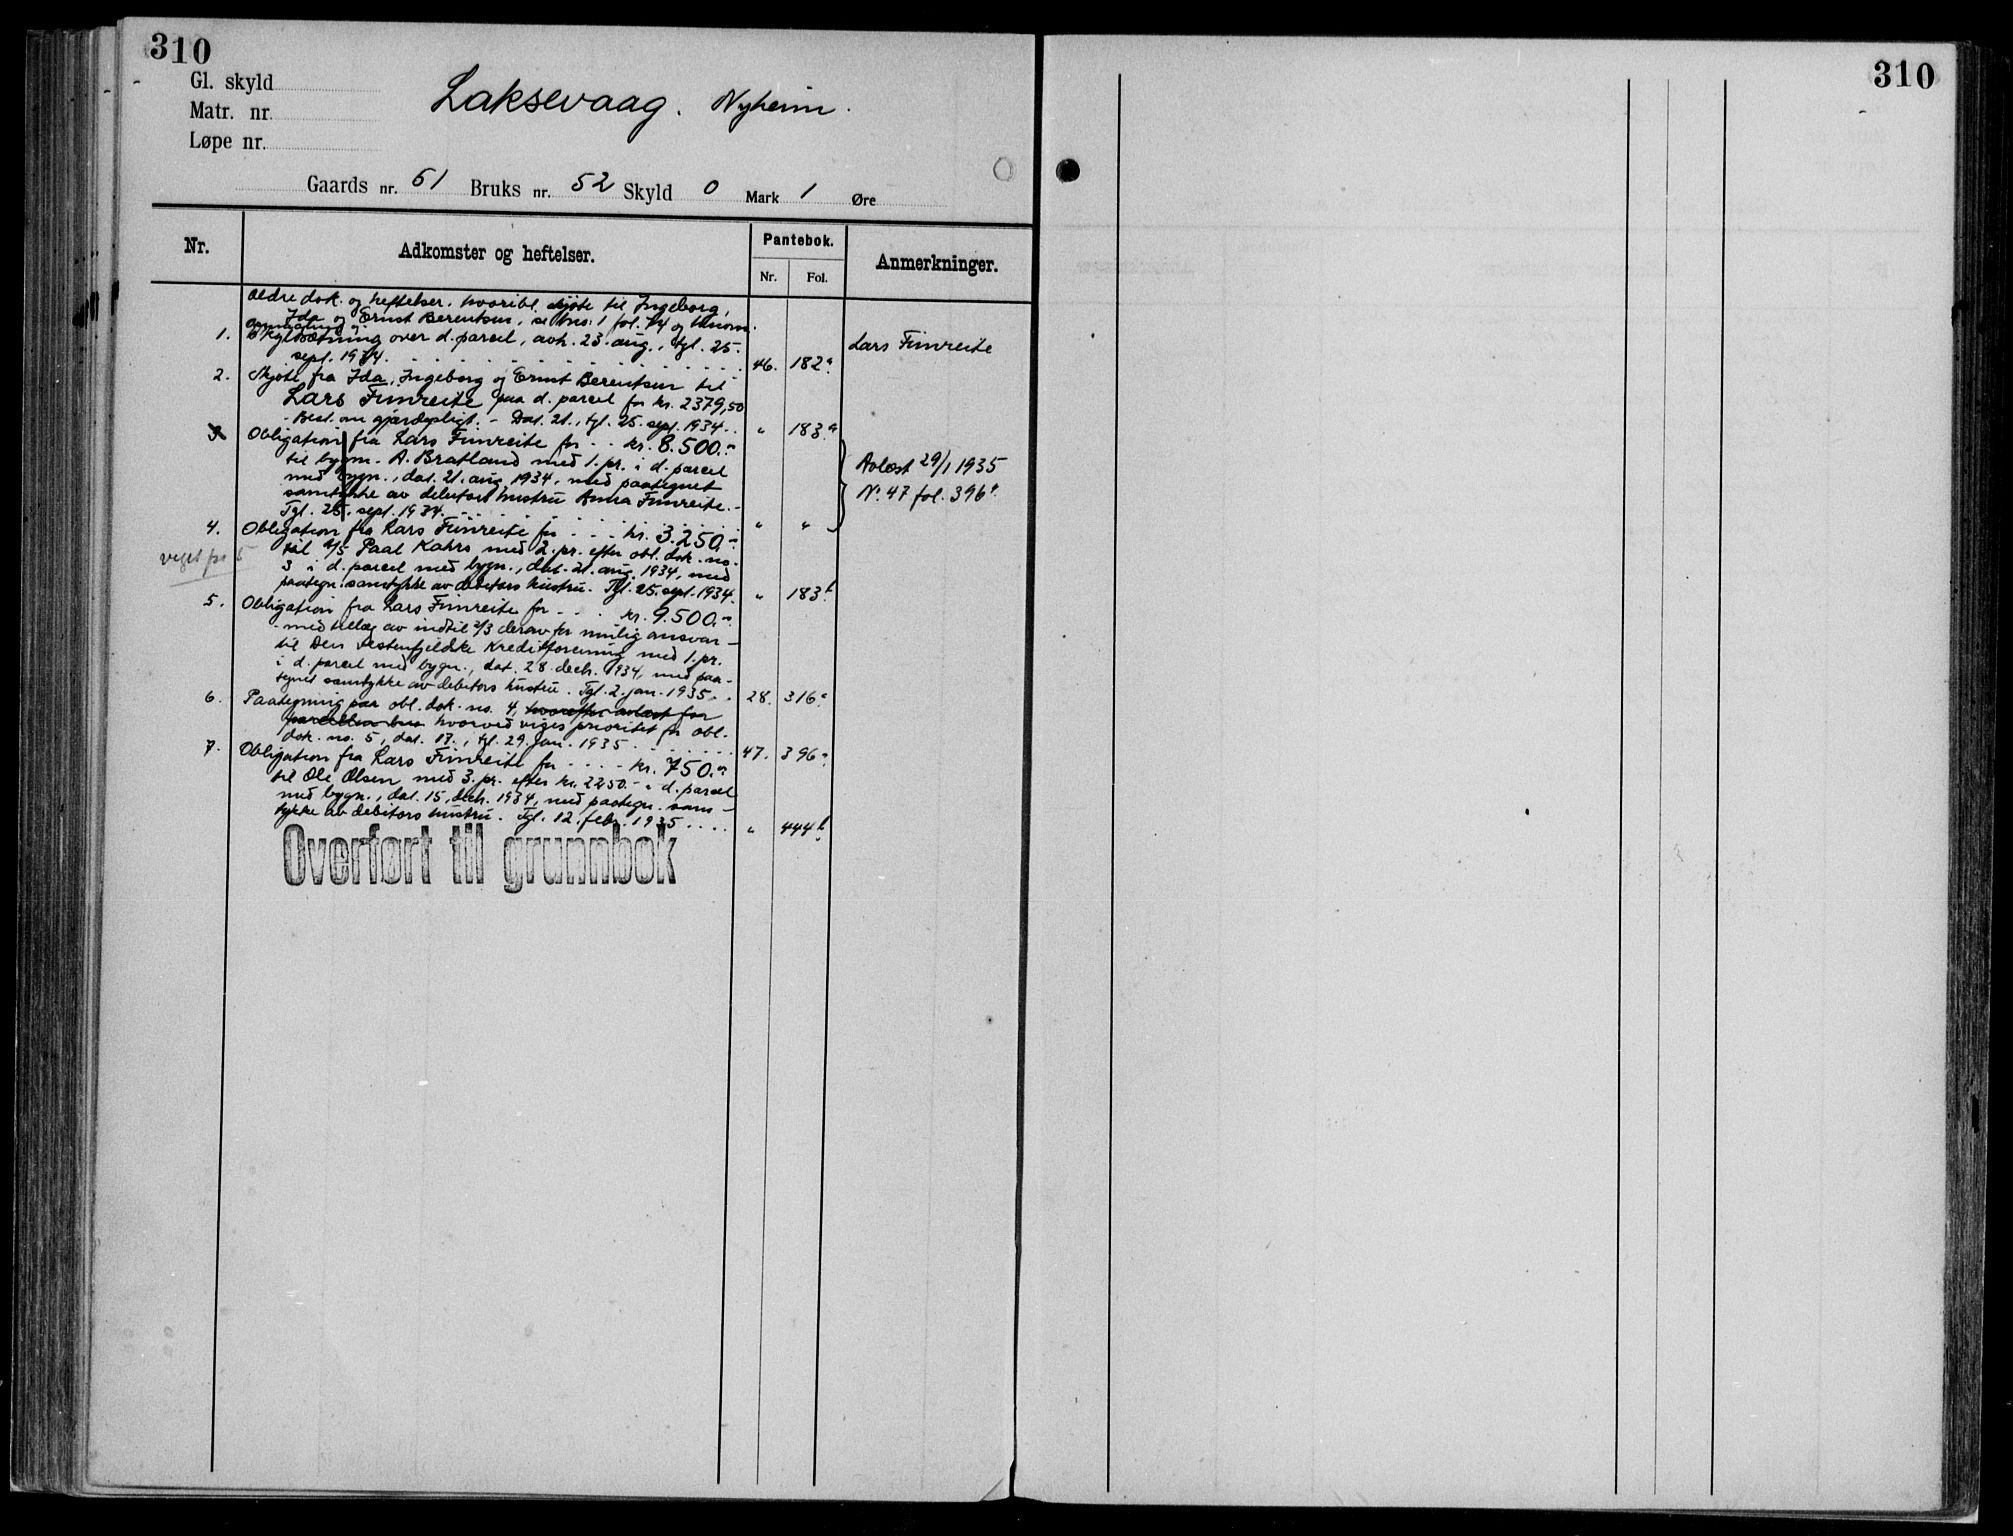 310
310
Gl. skyld
Matr. nr.
Løpe nr.
Laksevaag. Nyheim.
Gaards nr. 61 Bruks nr. 52 Skyld 0 Mark 1 Øre
Nr. Adkomster og heftelser. Pantebok. Anmerkninger.
Nr. Fol.
Ældre dok. og heftelser, hvoribl. skjøte til Ingeborg,
Ida og Ernst Berentsen, se bno: 1 fol. 74 og
1. Skyldsætning over d. parcel, avh. 23. aug., tgl. 25. Lars Fimreite
sept. 1934. 46. 182a
2. Skjøte fra Ida, Ingeborg og Ernst Berentsen til
Lars Fimreite paa d. parcel for kr. 2379,50
- Best. om gjærdepligt. - Dat. 21., tgl. 25. sept. 1934. " 183a
3 Obligation fra Lars Fimreite for kr. 8.500.-
til bygm. A. Bratland med 1. pr. i d. parcel Avlæst 29/1 1935
med bygn., dat. 21. aug. 1934, med paategnet No. 47 fol. 396a.
samtykke av debitors hustru Anna Fimreite.
Tgl. 25. sept. 1934. " "
4. Obligation fra Lars Fimreite for kr. 3.250.-
viget for 5
til A/S Paal Kahrs med 2. pr. efter obl. dok. no.
3 i d. parcel med bygn., dat. 21. aug. 1934, med
paategn. samtykke av debitors hustru. Tgl. 25. sept. 1934. " 183b
5. Obligation fra Lars Fimreite for kr. 9.500.-
- med tillæg av indtil 2/3 derav for mulig ansvar -
til Den Vestenfjeldske Kreditforening med 1. pr.
i d. parcel med bygn., dat. 28. decb. 1934, med paa-
tegnet samtykke av debitors hustru. Tgl. 2. jan. 1935. 28. 316a
6. Paategning paa obl. dok. no. 4, hvorefter avlæst for
parcellen bno hvorved viges prioritet for obl.
dok. no. 5, dat. 17., tgl. 29. jan. 1935 47. 396a
7. Obligation fra Lars Fimreite for kr. 750.-
til Ole Olsen med 3. pr. efter kr. 2250.- i d. parcel
med bygn., dat. 15. decb. 1934, med paategn. sam-
tykke av debitors hustru. Tgl. 12. febr. 1935 " 444b
Overført til grunnbok